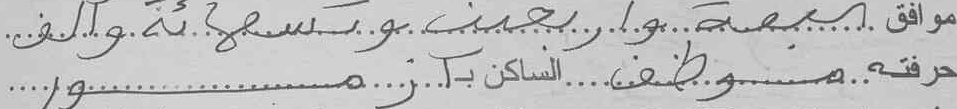 موافق لسبعة وأربعين وتسعمائة وألف
حرفته موظف الساكن بـ آزمور